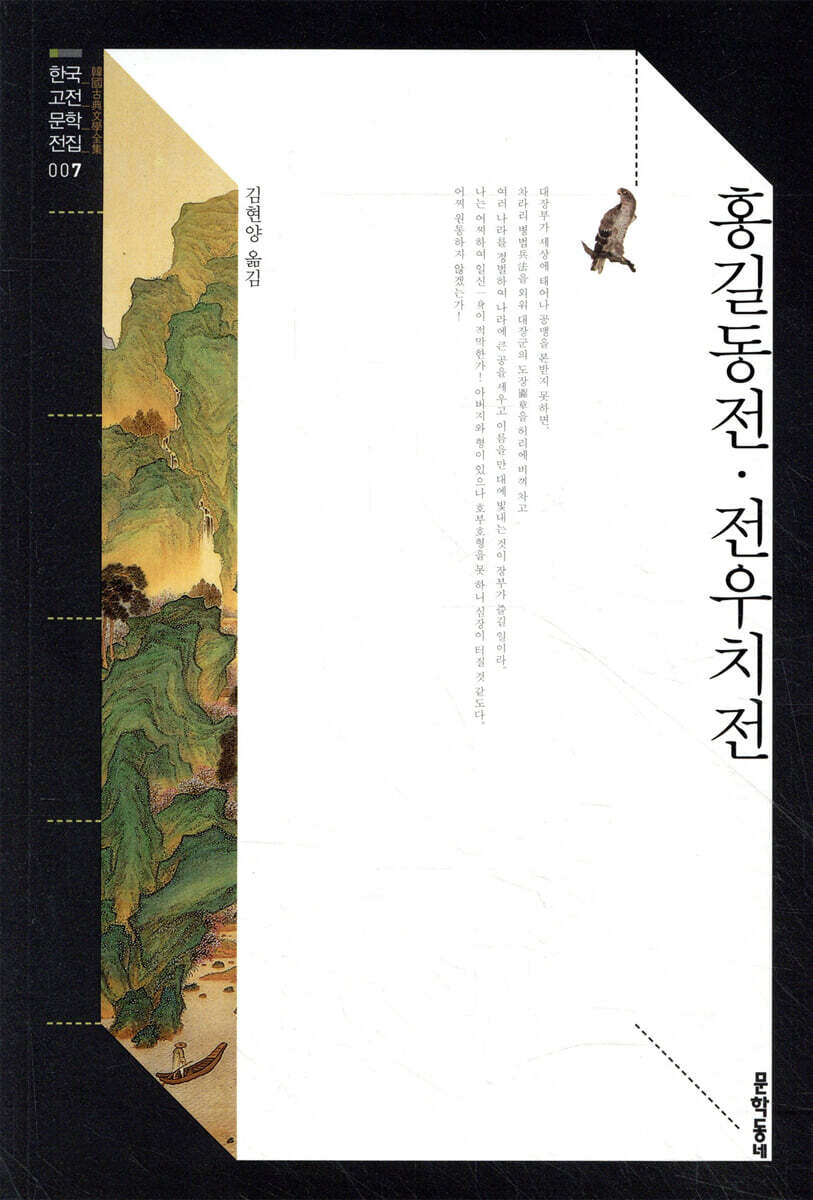 한국
고전
문학
전집
007
韓國古典文學全集
홍길동전·전우치전
대장부가 세상에 태어나 공맹을 본받지 못하면,
차라리 병법兵法을 외워 대장군의 도장圖章을 허리에 비껴 차고
여러 나라를 정벌하여 나라에 큰 공을 세우고 이름을 만 대에 빛내는 것이 장부가 즐길 일이라.
나는 어찌하여 일신一身이 적막한가! 아버지와 형이 있으나 호부호형을 못 하니 심장이 터질 것 같도다.
어찌 원통하지 않겠는가!
김현양 옮김
문학동네